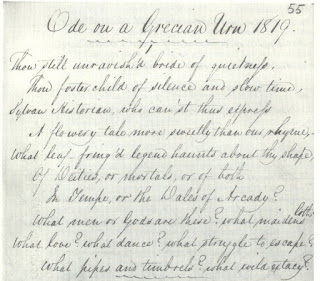 55
Ode on a Grecian Urn 1819.
Thou still unravish'd bride of quietness,
Thou foster child of silence and slow time,
Sylvan Historian, who can'st thus express
A flowery tale more sweetly than our rhyme,
What leaf-fring'd legend haunts about thy shape,
Of Deities, or mortals, or of both
In Tempe, or the Dales of Arcady?
What men or Gods are these? what maidens loth?
What love? what dance? what struggle to escape?
What pipes and timbrels? what wild extacy?